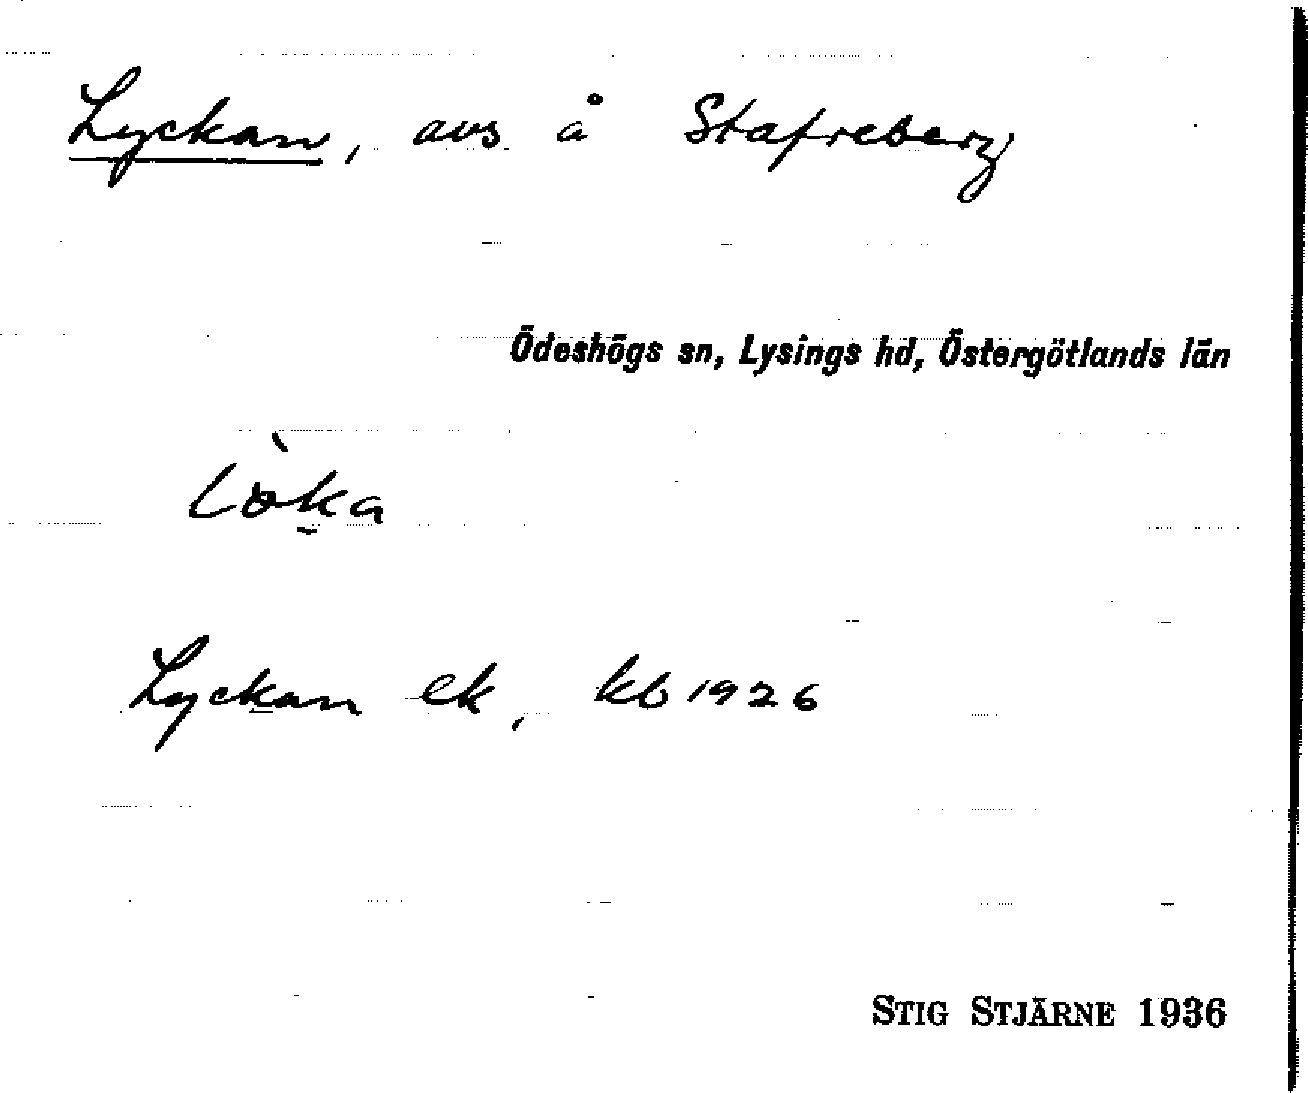 Lyckan, avs å Stafreberg
Ödeshögs sn, Lysings hd, Östergötlands län
lö̀k̠a
Lyckan ek, kb 1926
STIG STJÄRNE 1936